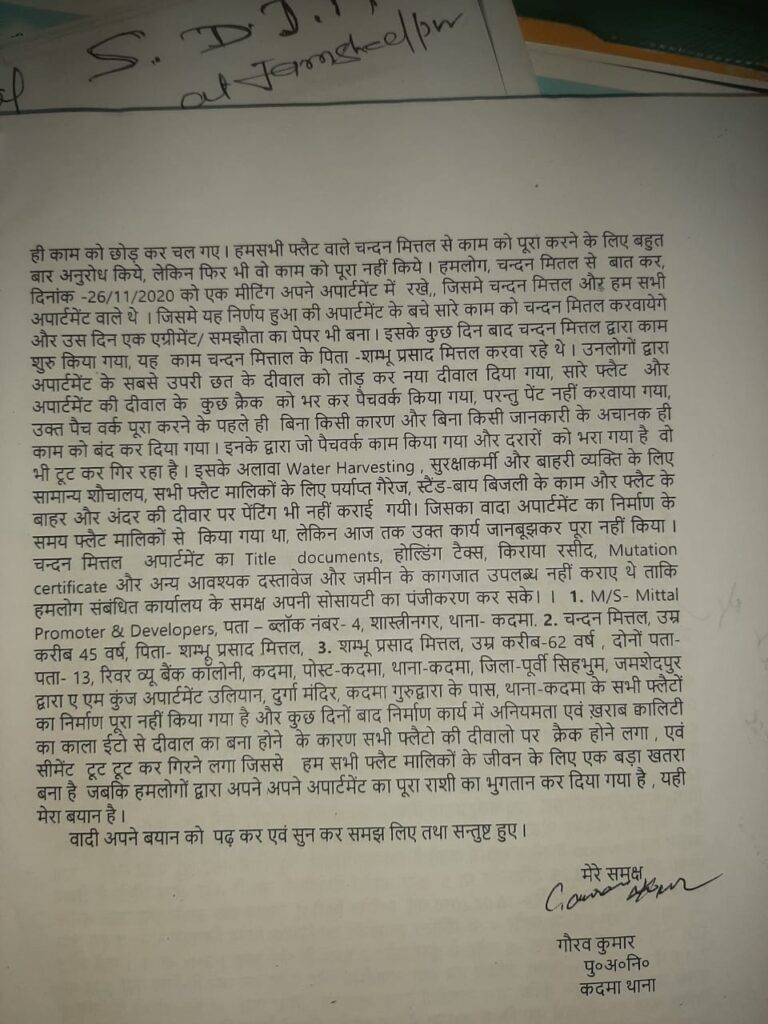 S. D. J.
at Jamshedpur
ही काम को छोड़ कर चल गए । हमसभी फ्लैट वाले चन्दन मित्तल से काम को पूरा करने के लिए बहुत
बार अनुरोध किये, लेकिन फिर भी वो काम को पूरा नहीं किये । हमलोग, चन्दन मितल से बात कर,
दिनांक -26/11/2020 को एक मीटिंग अपने अपार्टमेंट में रखे,, जिसमे चन्दन मित्तल और हम सभी
अपार्टमेंट वाले थे । जिसमे यह निर्णय हुआ की अपार्टमेंट के बचे सारे काम को चन्दन मितल करवायेगे
और उस दिन एक एग्रीमेंट/ समझौता का पेपर भी बना । इसके कुछ दिन बाद चन्दन मित्तल द्वारा काम
शुरु किया गया, यह काम चन्दन मित्ताल के पिता -शम्भू प्रसाद मित्तल करवा रहे थे । उनलोगों द्वारा
अपार्टमेंट के सबसे उपरी छत के दीवाल को तोड़ कर नया दीवाल दिया गया, सारे फ्लैट और
अपार्टमेंट की दीवाल के कुछ क्रैक को भर कर पैचवर्क किया गया, परन्तु पेंट नहीं करवाया गया,
उक्त पैच वर्क पूरा करने के पहले ही बिना किसी कारण और बिना किसी जानकारी के अचानक ही
काम को बंद कर दिया गया । इनके द्वारा जो पैचवर्क काम किया गया और दरारों को भरा गया है वो
भी टूट कर गिर रहा है । इसके अलावा Water Harvesting , सुरक्षाकर्मी और बाहरी व्यक्ति के लिए
सामान्य शौचालय, सभी फ्लैट मालिकों के लिए पर्याप्त गैरेज, स्टैंड-बाय बिजली के काम और फ्लैट के
बाहर और अंदर की दीवार पर पेंटिंग भी नहीं कराई गयी। जिसका वादा अपार्टमेंट का निर्माण के
समय फ्लैट मालिकों से किया गया था, लेकिन आज तक उक्त कार्य जानबूझकर पूरा नहीं किया ।
चन्दन मित्तल अपार्टमेंट का Title documents, होल्डिंग टैक्स, किराया रसीद, Mutation
certificate और अन्य आवश्यक दस्तावेज और जमीन के कागजात उपलब्ध नहीं कराए थे ताकि
हमलोग संबंधित कार्यालय के समक्ष अपनी सोसायटी का पंजीकरण कर सके। । 1. M/S- Mittal
Promoter & Developers, पता – ब्लॉक नंबर- 4, शास्त्रीनगर, थाना- कदमा. 2. चन्दन मित्तल, उम्र
करीब 45 वर्ष, पिता- शम्भू प्रसाद मित्तल, 3. शम्भू प्रसाद मित्तल, उम्र करीब-62 वर्ष , दोनों पता-
पता- 13, रिवर व्यू बैंक कॉलोनी, कदमा, पोस्ट-कदमा, थाना-कदमा, जिला-पूर्वी सिहभुम, जमशेदपुर
द्वारा ए एम कुंज अपार्टमेंट उलियान, दुर्गा मंदिर, कदमा गुरुद्वारा के पास, थाना-कदमा के सभी फ्लैटों
का निर्माण पूरा नहीं किया गया है और कुछ दिनों बाद निर्माण कार्य में अनियमता एवं ख़राब क्वालिटी
का काला ईटो से दीवाल का बना होने के कारण सभी फ्लैटो की दीवालो पर क्रैक होने लगा , एवं
सीमेंट टूट टूट कर गिरने लगा जिससे हम सभी फ्लैट मालिकों के जीवन के लिए एक बड़ा खतरा
बना है जबकि हमलोगों द्वारा अपने अपने अपार्टमेंट का पूरा राशी का भुगतान कर दिया गया है , यही
मेरा बयान है ।
वादी अपने बयान को पढ़ कर एवं सुन कर समझ लिए तथा सन्तुष्ट हुए ।
मेरे समक्ष
गौरव कुमार
पु०अ०नि०
कदमा थाना